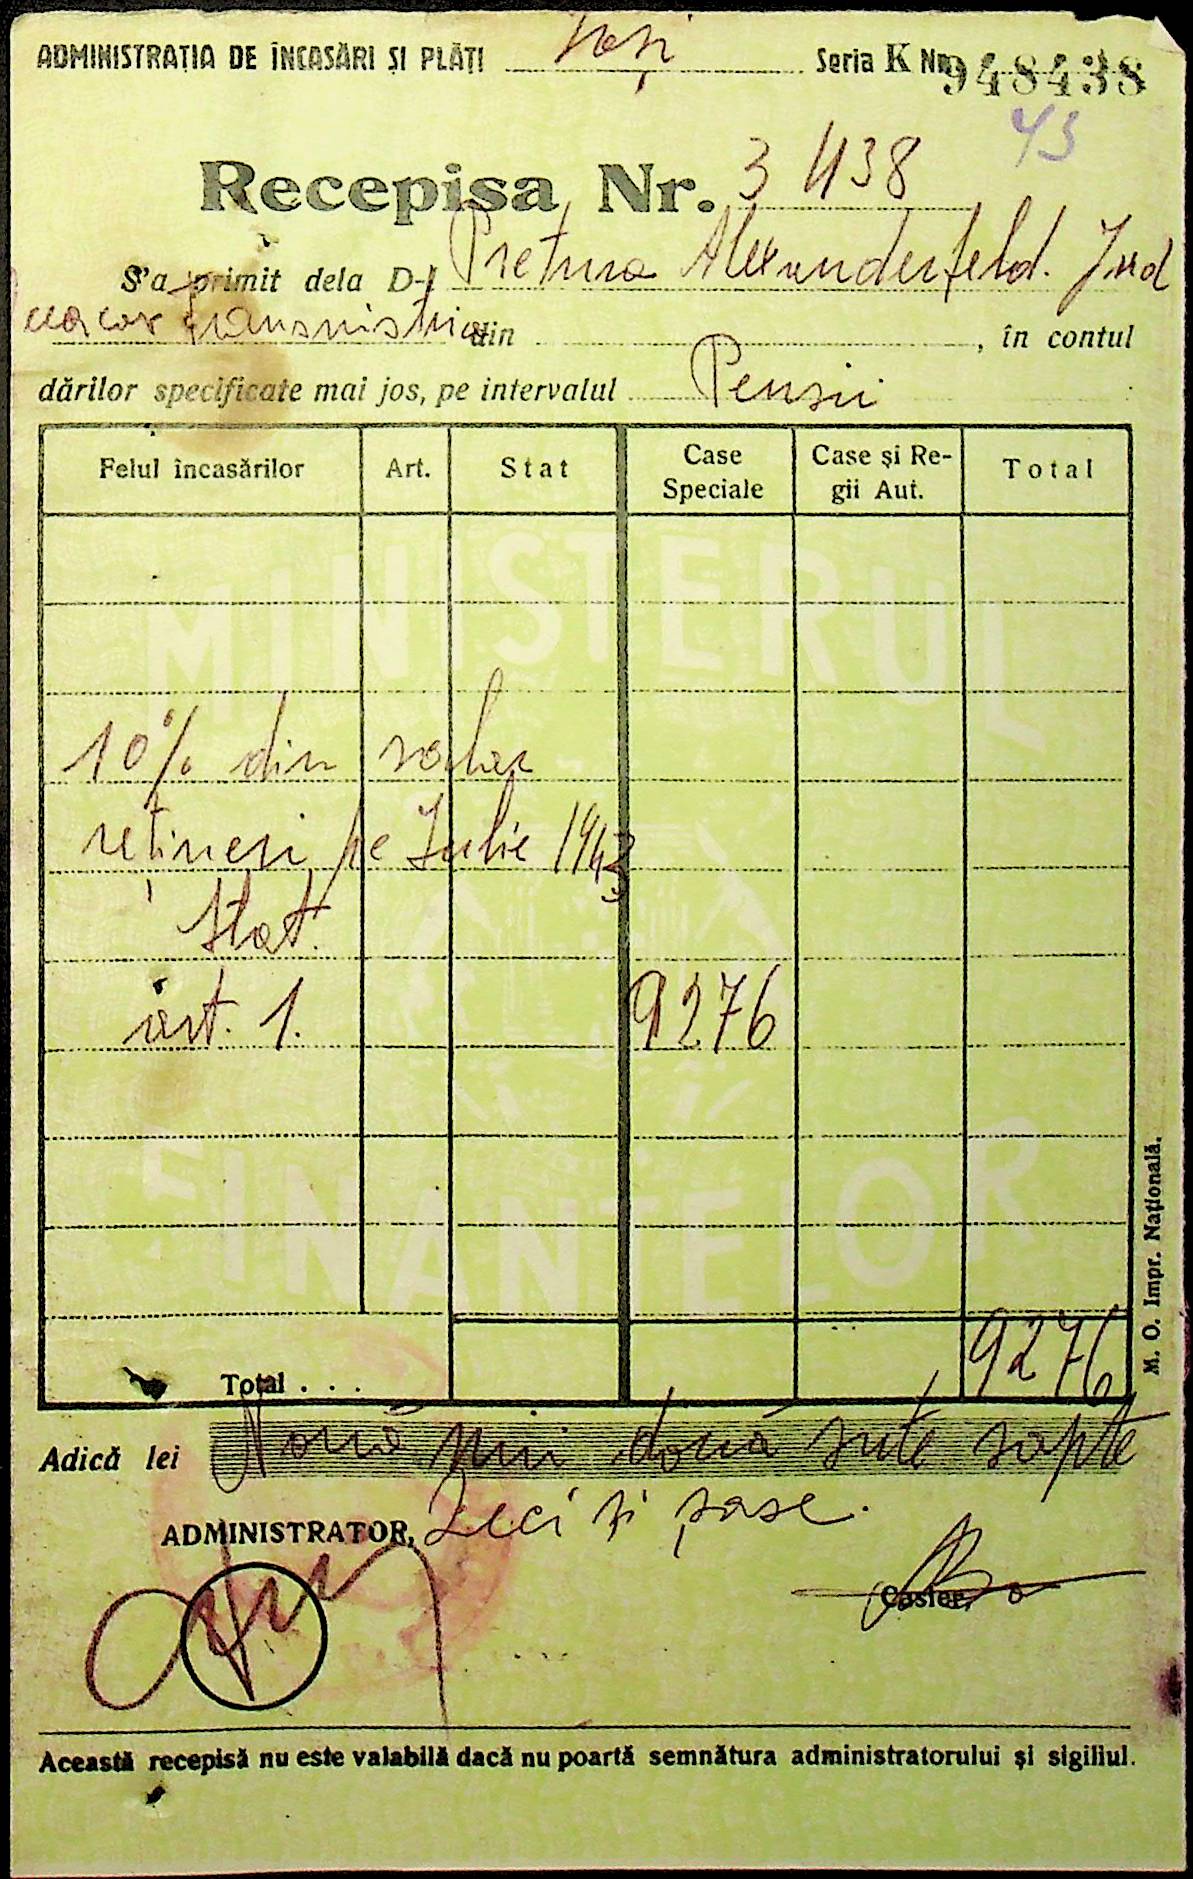 ADMINISTRAȚIA DE ÎNCASĂRI ȘI PLĂȚI Iași Seria K Nr. 948438
43
Recepisa Nr. 3438
S'a primit dela D-l Pretura Alexanderfeld. Jud
transnistria din , în contul
dărilor specificate mai jos, pe intervalul Pensii
Felul încasărilor Art. Stat Case Speciale Case și Regii Aut. Total
MINISTERUL
10% din salar
rețineri pe Iulie 1943
Stat.
art. 1. 9276
FINANȚELOR
Total . . . 9276
Adică lei Nouă mii două sute șapte
zeci și șase.
ADMINISTRATOR,
Casier,
Această recepisă nu este valabilă dacă nu poartă semnătura administratorului și sigiliul.
M. O. Impr. Națională.